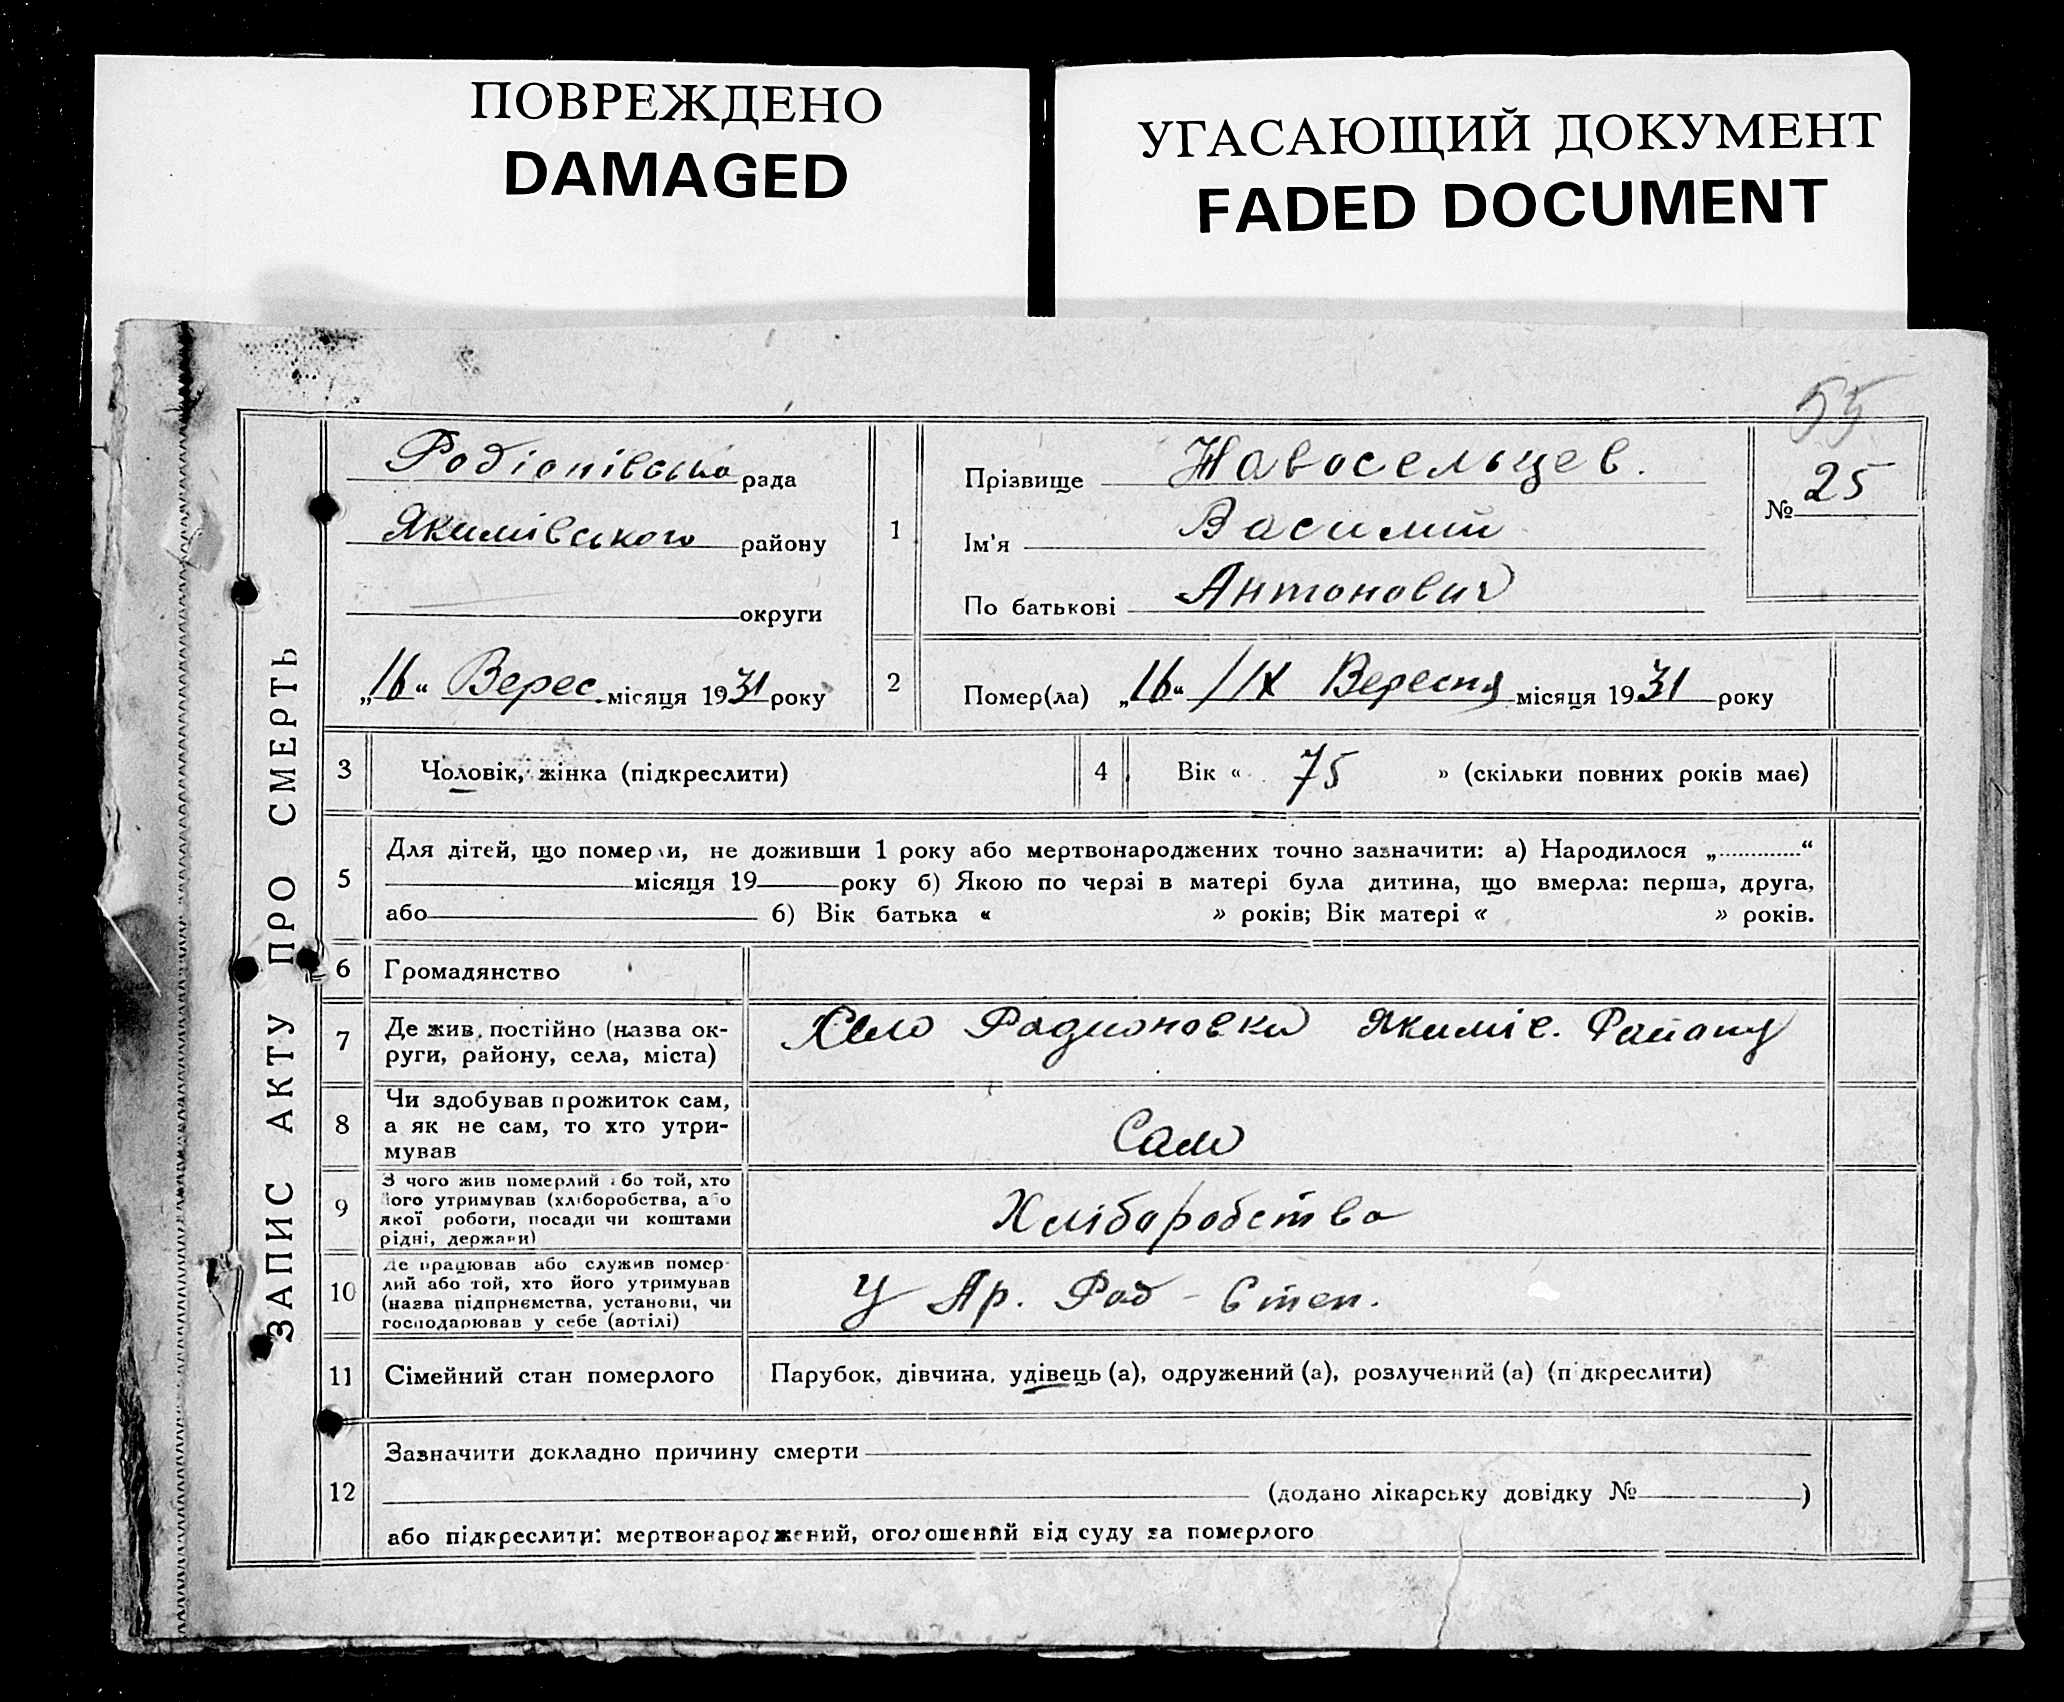 ПОВРЕЖДЕНО
DAMAGED
УГАСАЮЩИЙ ДОКУМЕНТ
FADED DOCUMENT
55
ЗАПИС АКТУ ПРО СМЕРТЬ
Родіонівська рада
Якимівського району
округи
„16“ Верес. місяця 1931 року
1
Прізвище Новосельцев.
Ім'я Василий
По батькові Антонович
№ 25
2 Помер(ла) „16“ /IX Вересня місяця 1931 року
3 Чоловік, жінка (підкреслити) 4 Вік « 75 » (скільки повних років має)
5 Для дітей, що померли, не доживши 1 року або мертвонароджених точно зазначити: а) Народилося „ “
місяця 19 року б) Якою по черзі в матері була дитина, що вмерла: перша, друга,
або б) Вік батька « » років; Вік матері « » років.
6 Громадянство
7 Де жив постійно (назва ок-
руги, району, села, міста)
Село Радионовка Якимів. Району
8 Чи здобував прожиток сам,
а як не сам, то хто утри-
мував
Сам
9 З чого жив померлий або той, хто
його утримував (хліборобства, або
якої роботи, посади чи коштами
рідні, держави)
Хліборобство
10 Де працював або служив помер-
лий або той, хто його утримував
(назва підприємства, установи, чи
господарював у себе (артілі)
У Ар. Рад - Степ.
11 Сімейний стан померлого Парубок, дівчина, удівець (а), одружений (а), розлучений (а) (підкреслити)
12 Зазначити докладно причину смерти
(додано лікарську довідку № )
або підкреслити: мертвонароджений, оголошений від суду за померлого